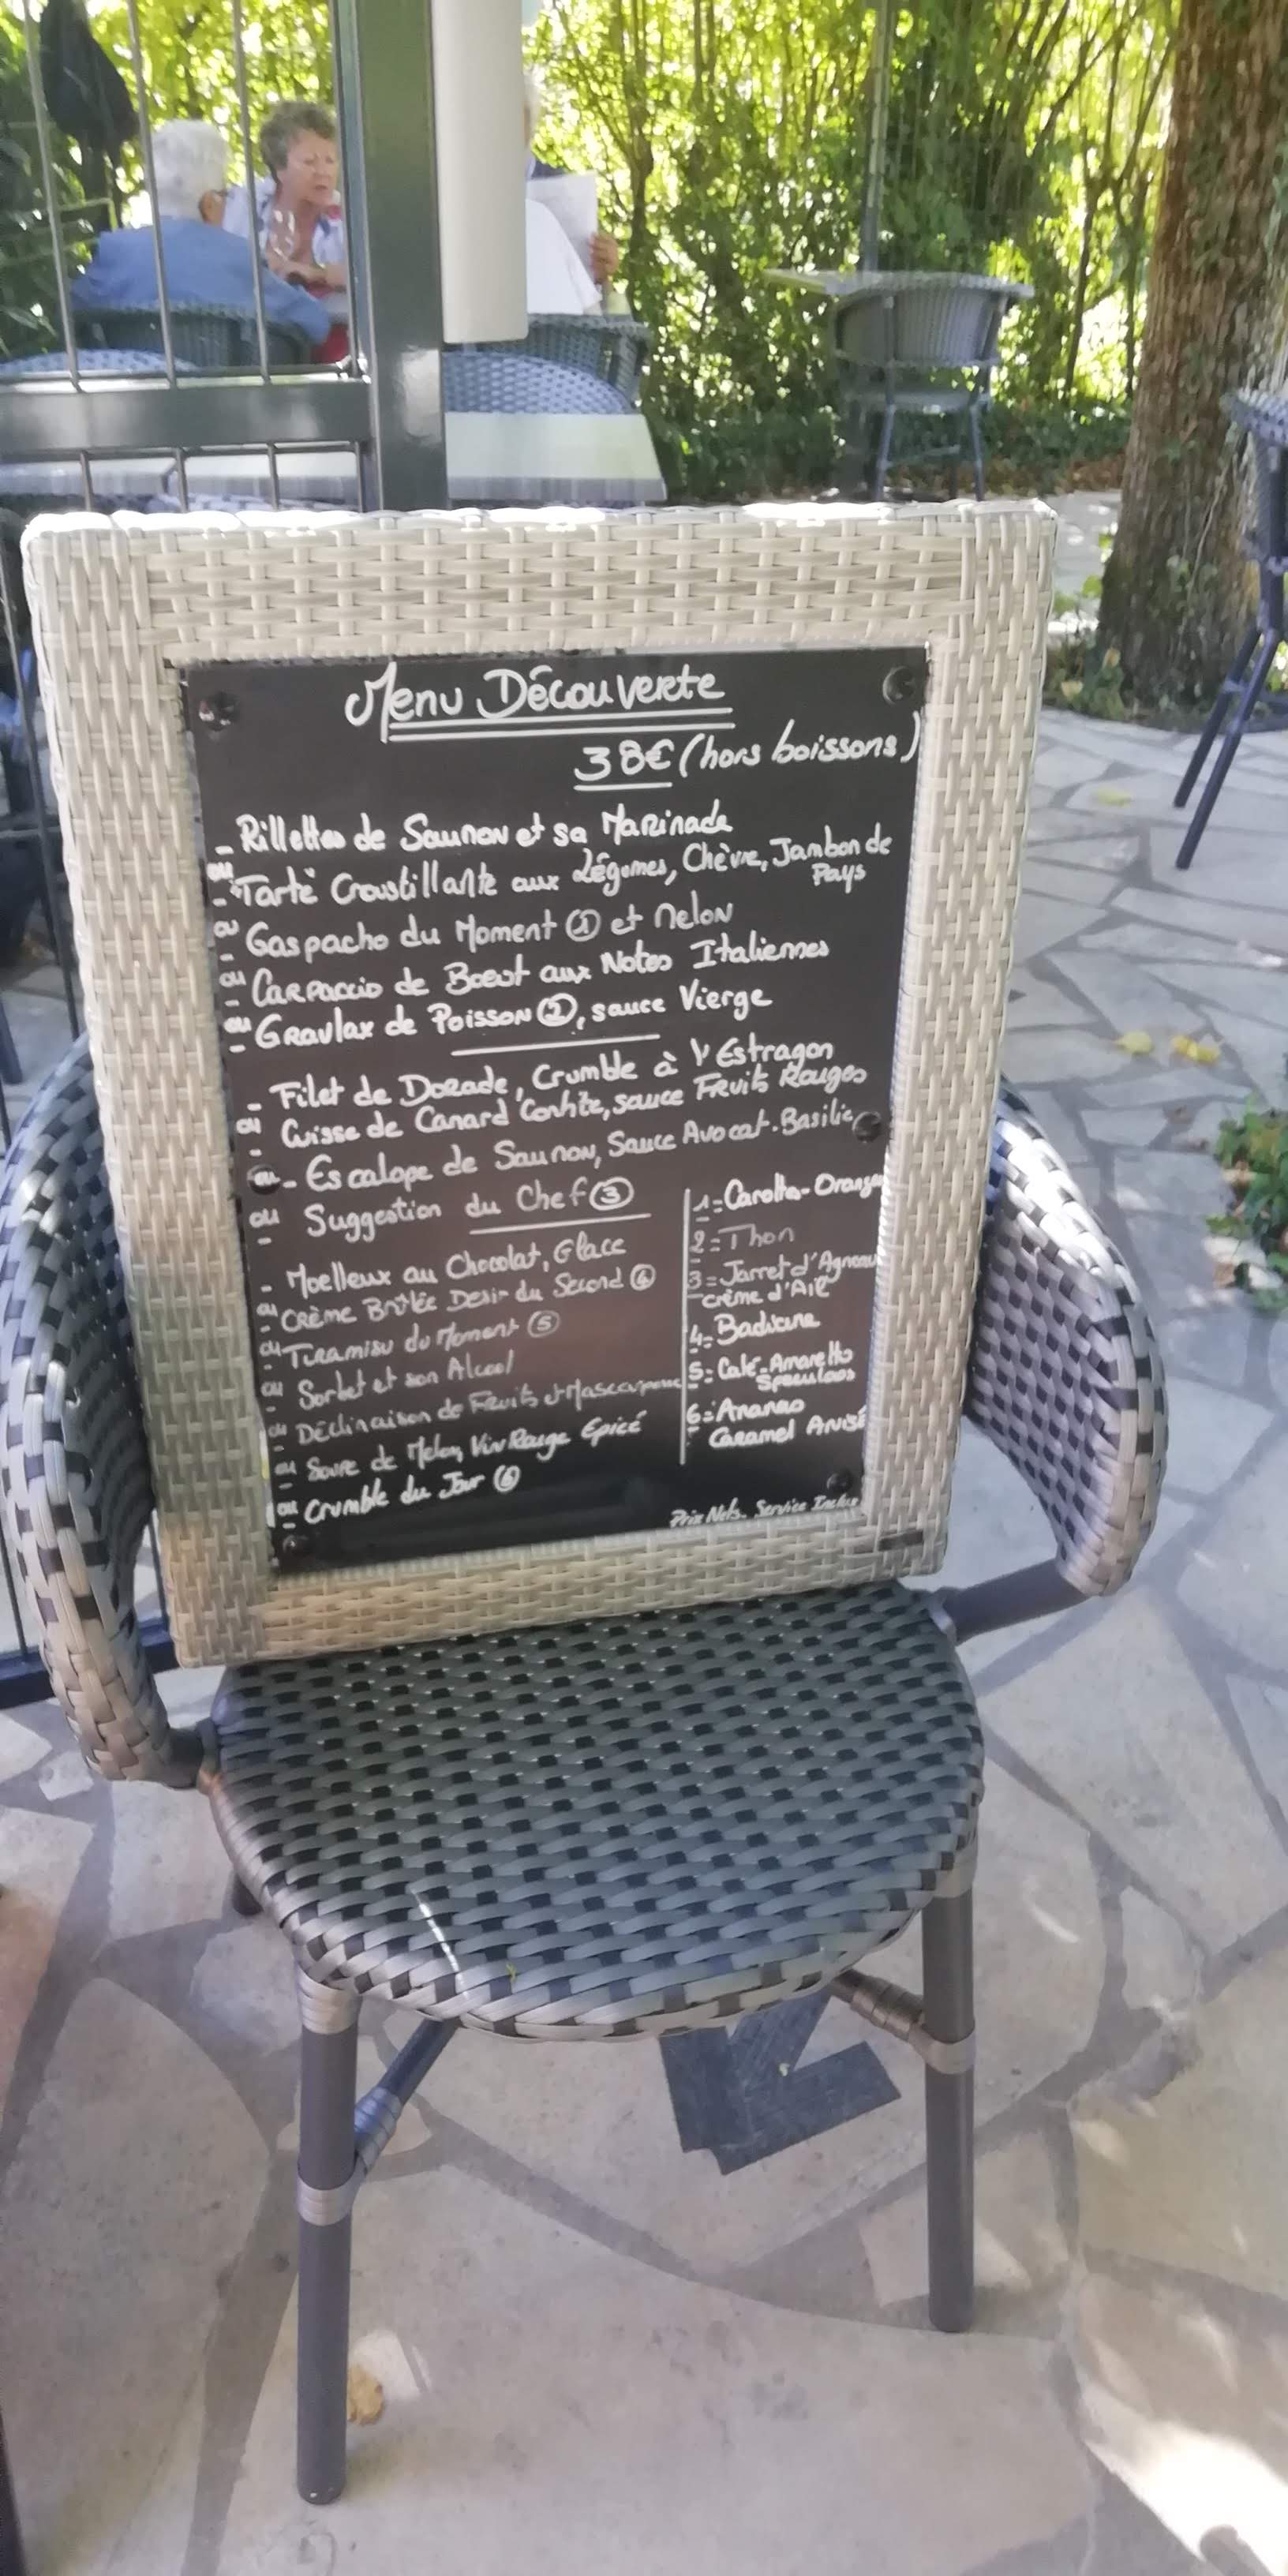 Menu Découverte
38€ (hors boissons)
- Rillettes de Saumon et sa Marinade
ou
- Tarte Croustillante aux Légumes, Chèvre, Jambon de
Pays
ou
- Gaspacho du Moment ① et Melon
ou
- Carpaccio de Boeuf aux Notes Italiennes
ou
- Gravlax de Poisson ②, sauce Vierge
- Filet de Dorade, Crumble à l'Estragon
ou
- Cuisse de Canard Confite, sauce Fruits Rouges
ou - Escalope de Saumon, Sauce Avocat-Basilic
ou
- Suggestion du Chef ③
- Moelleux au Chocolat, Glace
ou
- Crème Brûlée Desir du Second ④
ou
- Tiramisu du Moment ⑤
ou
- Sorbet et son Alcool
ou
- Déclinaison de Fruits et Mascarpone
ou
- Soupe de Melon, Vin Rouge Epicé
ou
- Crumble du Jour ⑥
1 = Carotte-Orange
2 = Thon
3 = Jarret d'Agneau
crème d'Ail
4 = Badiane
5 = Café-Amaretto
Speculoos
6 = Ananas
Caramel Anisé
Prix Nets. Service Inclus